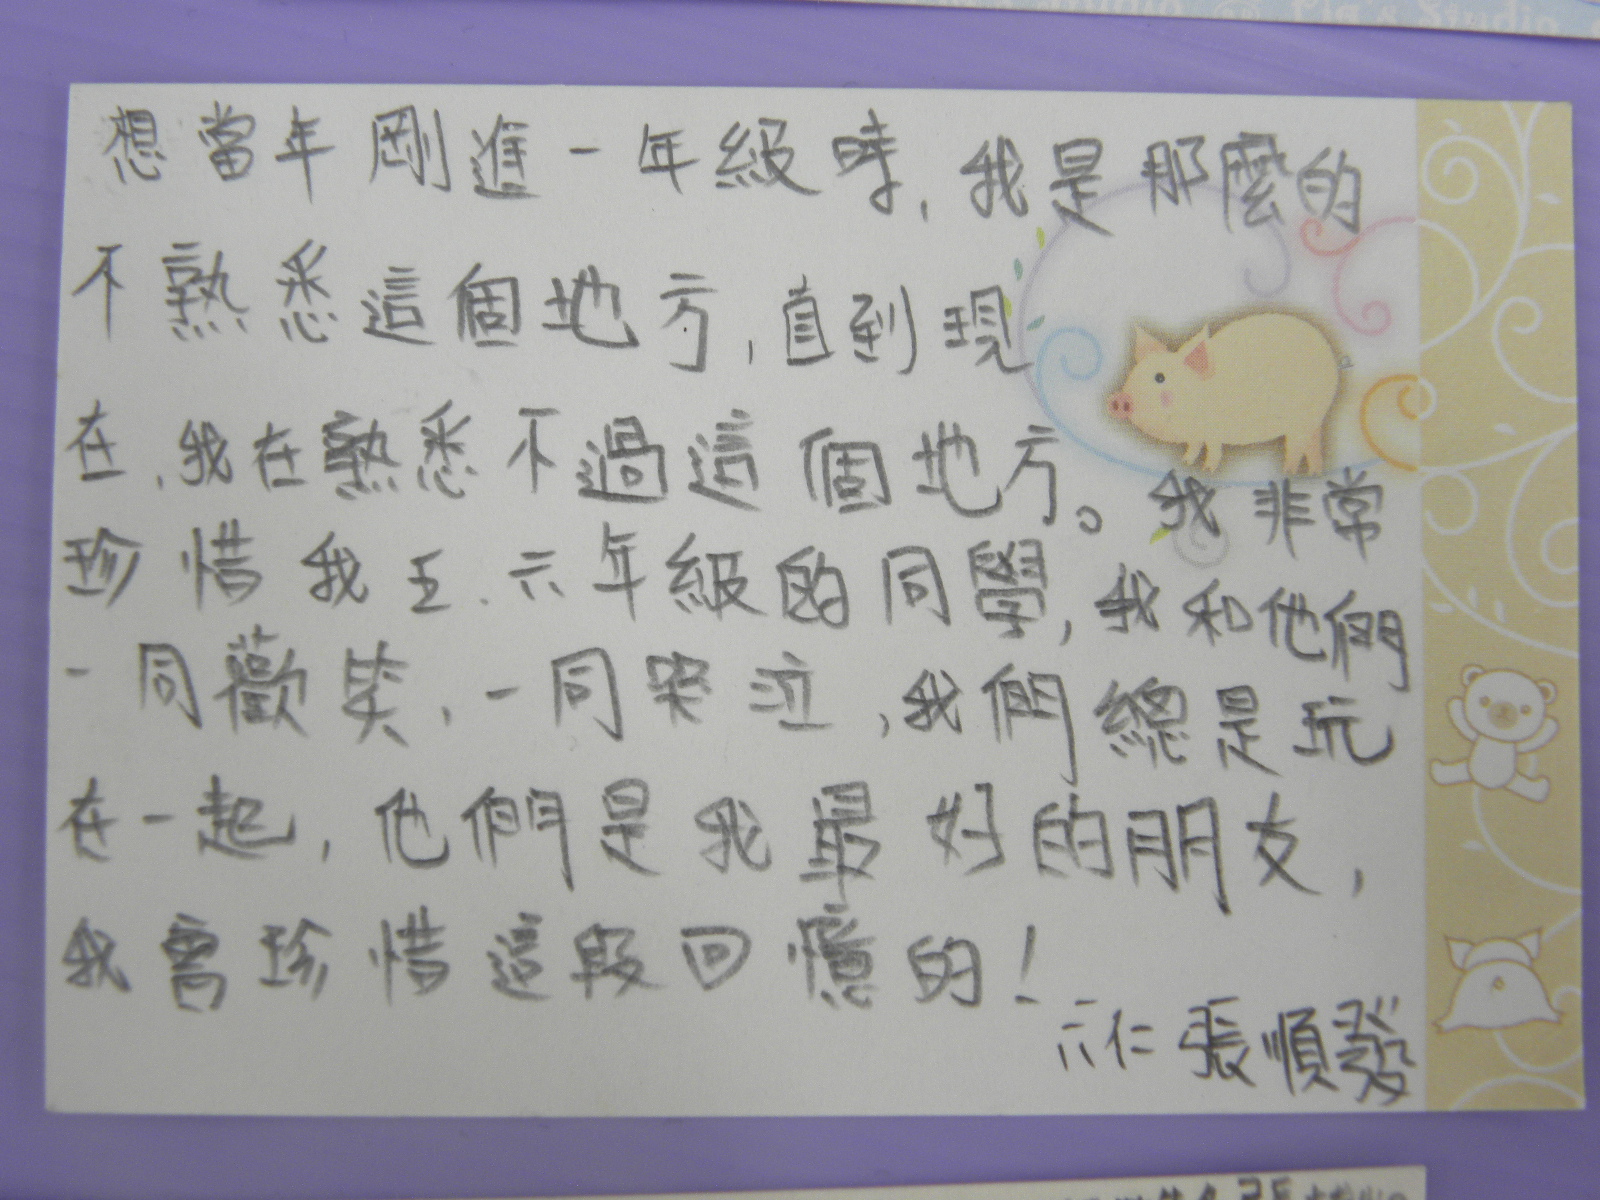 Pig's Studio
想當年剛進一年級時,我是那麼的
不熟悉這個地方,直到現
在,我在熟悉不過這個地方。我非常
珍惜我五.六年級的同學,我和他們
一同歡笑,一同哭泣,我們總是玩
在一起,他們是我最好的朋友,
我會珍惜這段回憶的!
六仁張順發